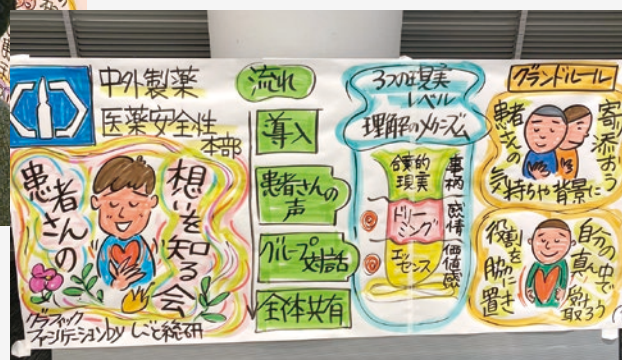 中外製薬
医薬安全性
本部
患者さんの
想いを知る会
グラフィック
ファシリテーションby しごと総研
流れ
導入
患者さんの
声
グループ対話
全体共有
3つの現実
レベル
理解のメカニズム
合意的
現実
事柄
ドリー
ミング
感情
エッセンス
価値感
グランドルール
患者さんの
気持ちや背景に
寄り添おう
役割を
脇に
置き
自分の中で
真ん
受け
取ろう